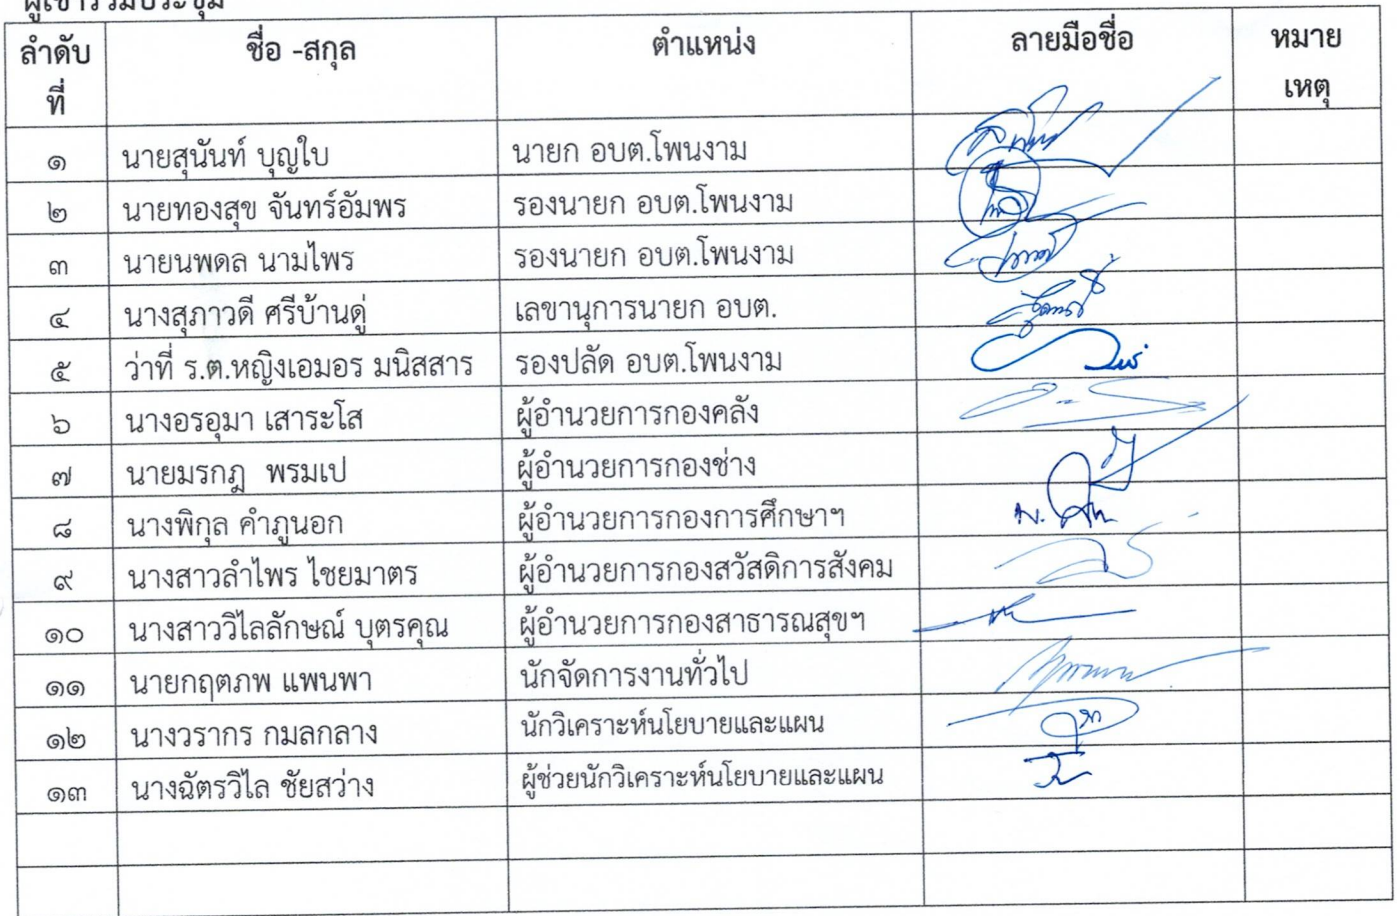 ผู้เข้าร่วมประชุม
ลำดับที่ ชื่อ -สกุล ตำแหน่ง ลายมือชื่อ หมายเหตุ
๑ นายสุนันท์ บุญใบ นายก อบต.โพนงาม
๒ นายทองสุข จันทร์อัมพร รองนายก อบต.โพนงาม
๓ นายนพดล นามไพร รองนายก อบต.โพนงาม
๔ นางสุภาวดี ศรีบ้านดู่ เลขานุการนายก อบต.
๕ ว่าที่ ร.ต.หญิงเอมอร มนิสสาร รองปลัด อบต.โพนงาม
๖ นางอรอุมา เสาระโส ผู้อำนวยการกองคลัง
๗ นายมรกฎ พรมเป ผู้อำนวยการกองช่าง
๘ นางพิกุล คำภูนอก ผู้อำนวยการกองการศึกษาฯ
๙ นางสาวลำไพร ไชยมาตร ผู้อำนวยการกองสวัสดิการสังคม
๑๐ นางสาววิไลลักษณ์ บุตรคุณ ผู้อำนวยการกองสาธารณสุขฯ
๑๑ นายกฤตภพ แพนพา นักจัดการงานทั่วไป
๑๒ นางวรากร กมลกลาง นักวิเคราะห์นโยบายและแผน
๑๓ นางฉัตรวิไล ชัยสว่าง ผู้ช่วยนักวิเคราะห์นโยบายและแผน